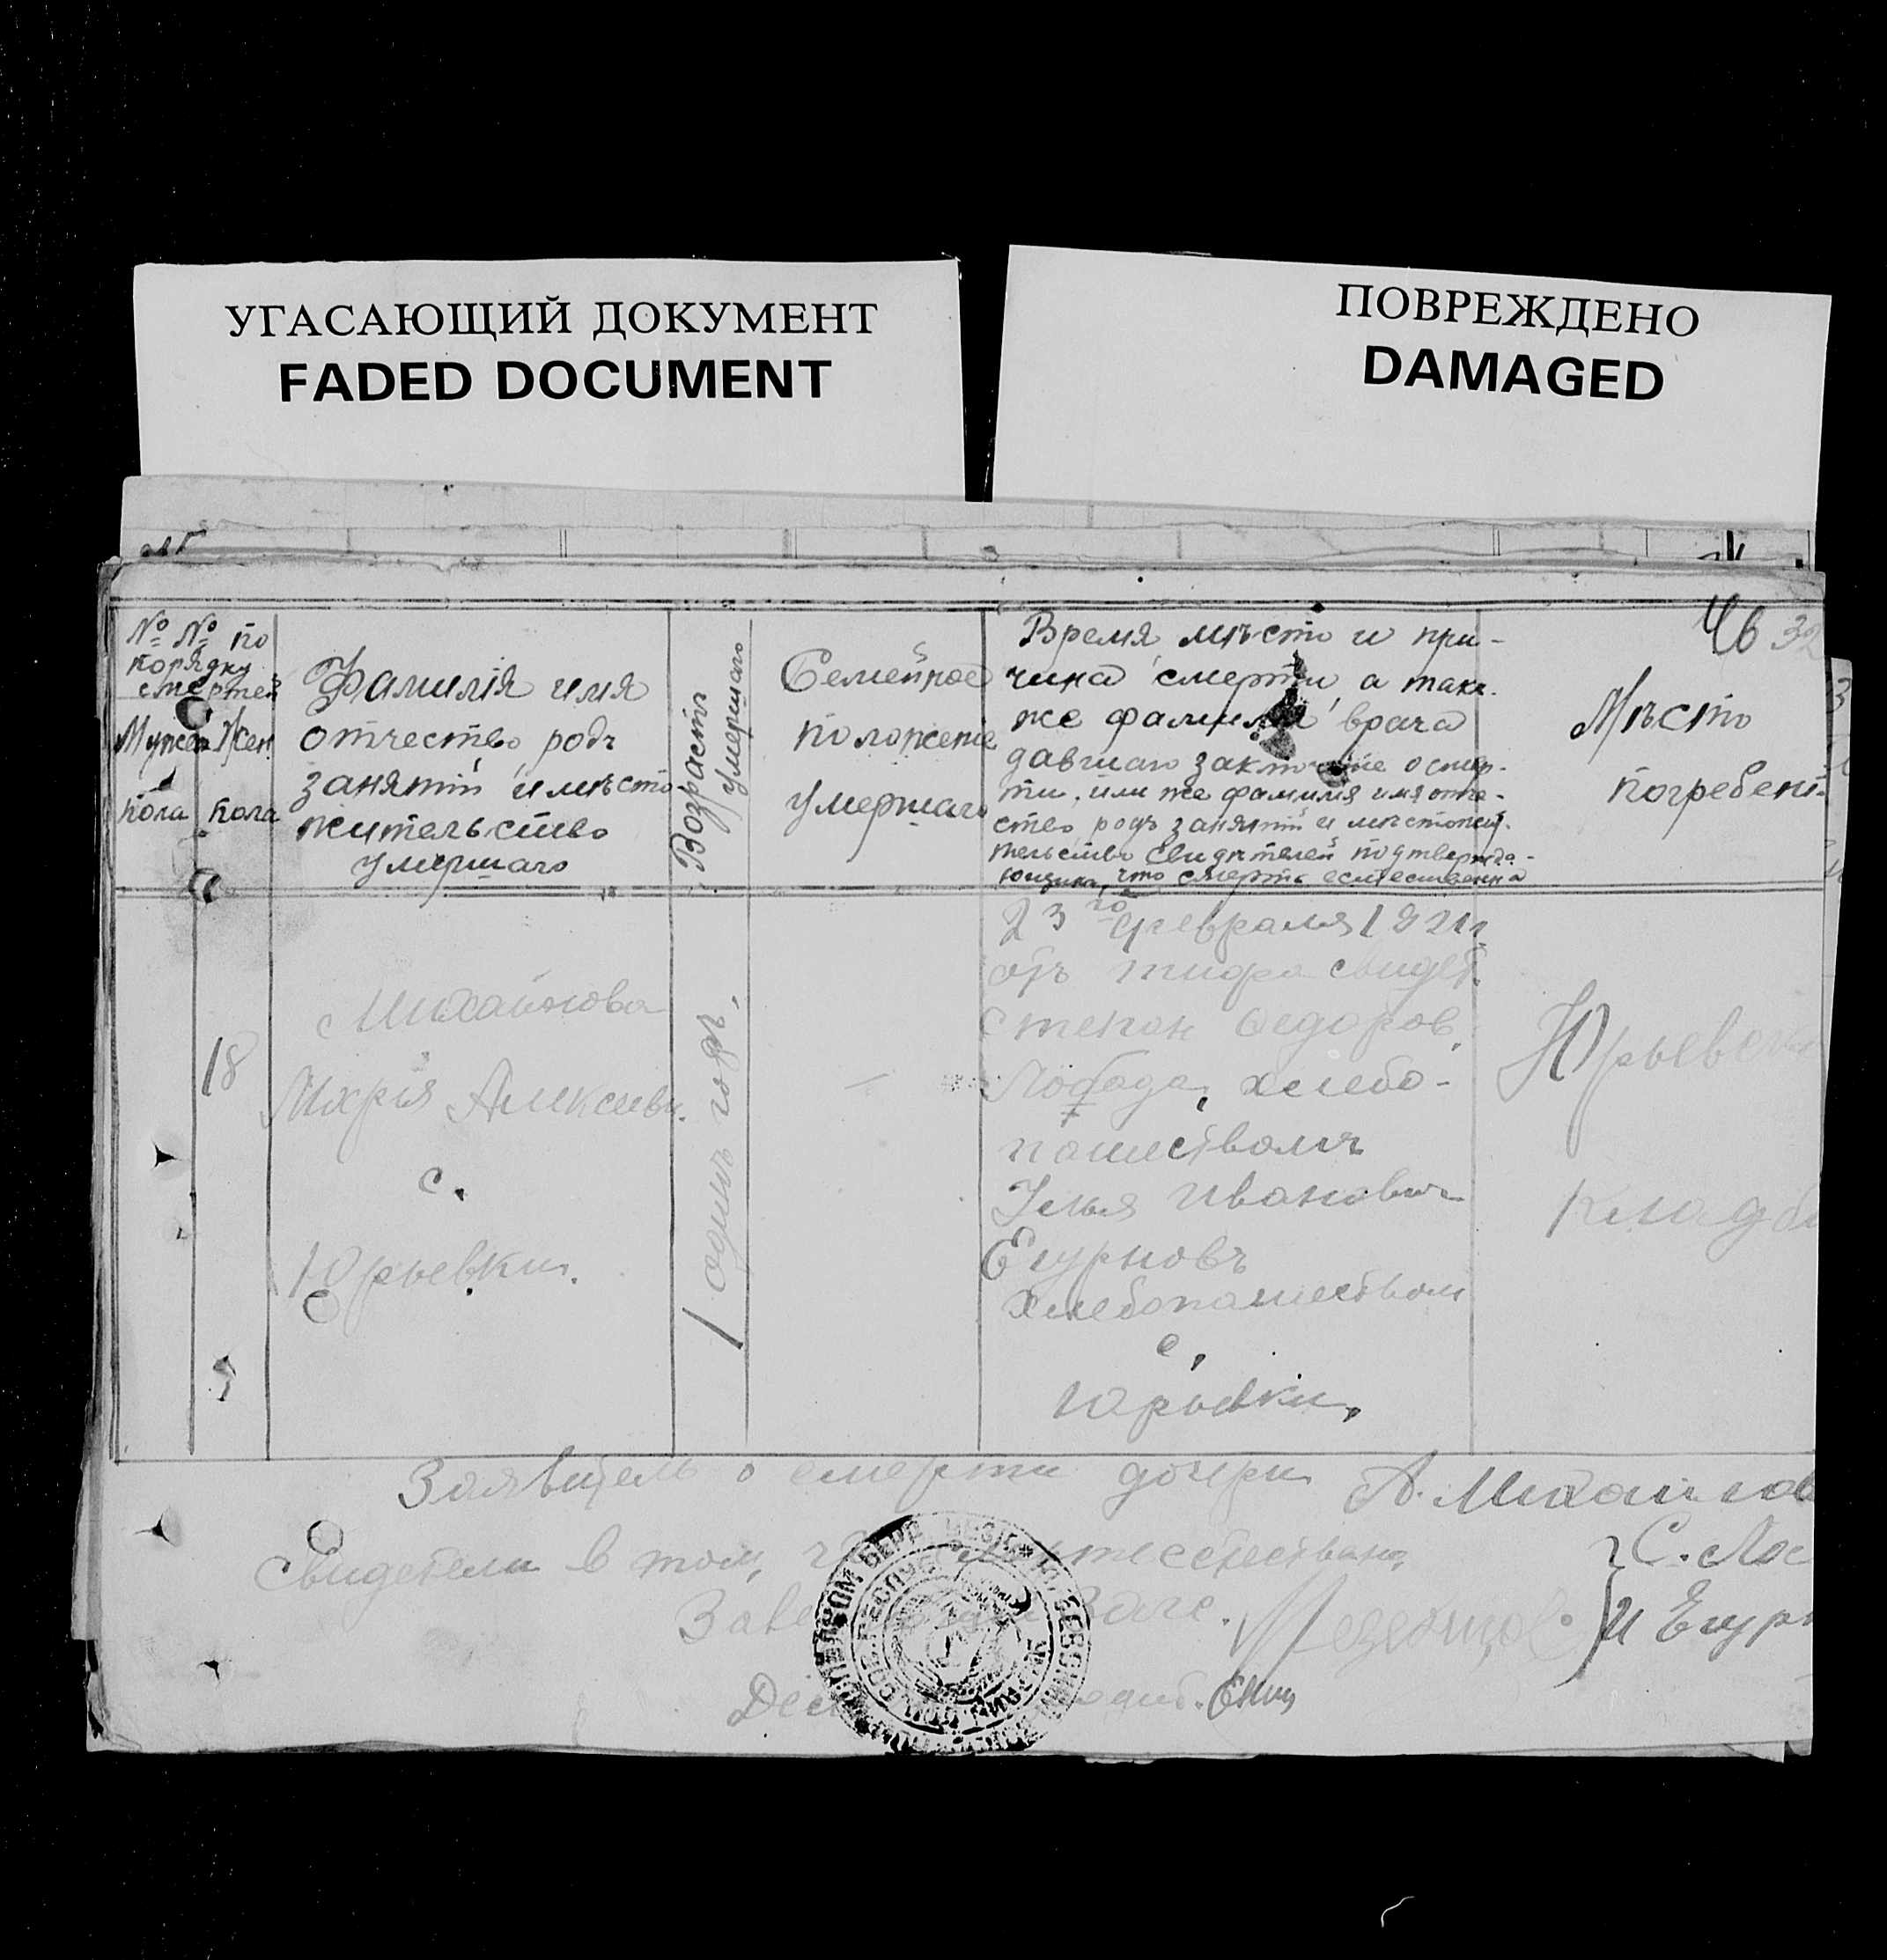 УГАСАЮЩИЙ ДОКУМЕНТ
FADED DOCUMENT
ПОВРЕЖДЕНО
DAMAGED
32
№ № по
порядку
смертей
Мужск
пола
Жен
пола
Фамилія имя
отчество родъ
занятій и мѣсто
жительство
умершаго
Возрастъ
умершаго
Семейное
положеніе
умершаго
Время мѣсто и при-
чина смерти, а так
же фамилія врача
давшаго заключеніе о смер-
ти, или же фамилія имя отче-
ство родъ занятій и мѣстожи-
тельство свидѣтелей подтвержда-
ющихъ, что смерть естественна
Мѣсто
погребені
18
Михайлова
Марія Алексѣевн.
с.
Юрьевки.
1 одинъ годъ.
—
23го февраля 1921 г
отъ тифа свидет.
Степан Федоров.
хлебо-
пашествомъ
Илья Иванович
Егурновъ
хлебопашеством
с.
Юрьевки,
Юрьевск
Кладби
Заявитель о смерти дочери А. Михайлов
Свидетели в том,
С. Лос
И Егурн